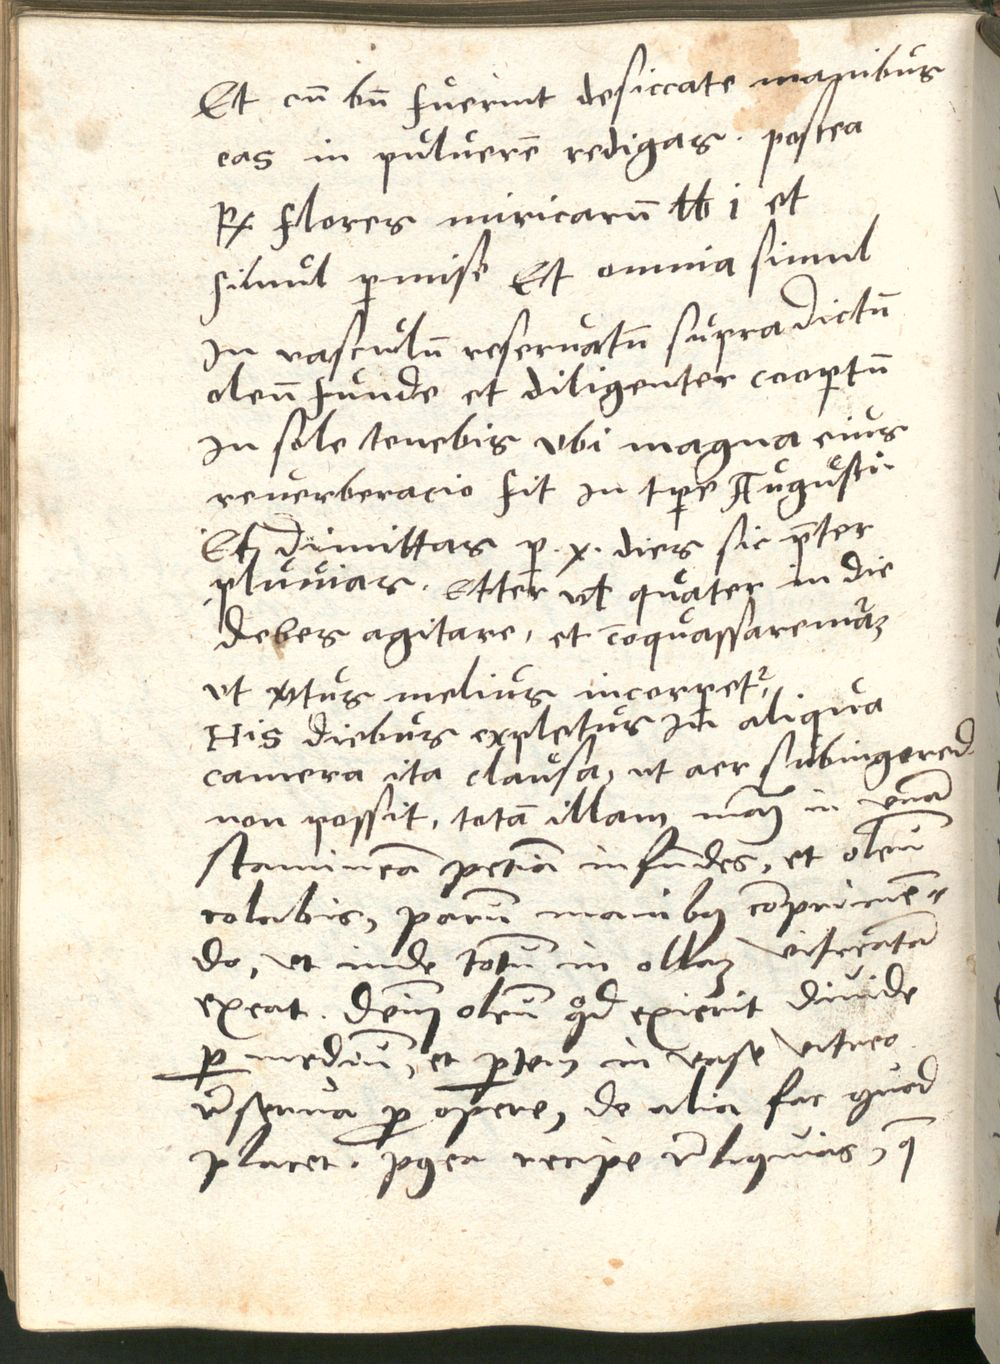 Et cū bn̄ fuerint desiccate manibus
eas in puluerē redigas. postea
℞ flores miricarū ℔ i et
simul p̱mise Et omnia simul
In vasculū reseruatū supradictū
oleū funde et diligenter coop̱tū
In sole tenebis vbi magna eius
reuerberacio fit In tp̱e Augusti.
Et dimittas p̱ .x. dies sic p̄ter
pluuias. Etter vel quater in die
debes agitare, et coquassare
ut melius incorp̱etᷣ,
His diebus expletus In aliqua
camera ita clausa, ut aer subingered
non possit, totā illam mām in vnā
stamineā petiā infūdes, et oleū
colabis, parū manibꝫ cōprimē=
do, ut inde totū in ollaꝫ vitreatā
exeat. Dein oleū qd exierit diuide
p̱ mediū, et p̱tem in vase vitreo
r̄serua p̱ opere, de alia fac quod
placet. pꝯea recipe r̄liquias, q̄